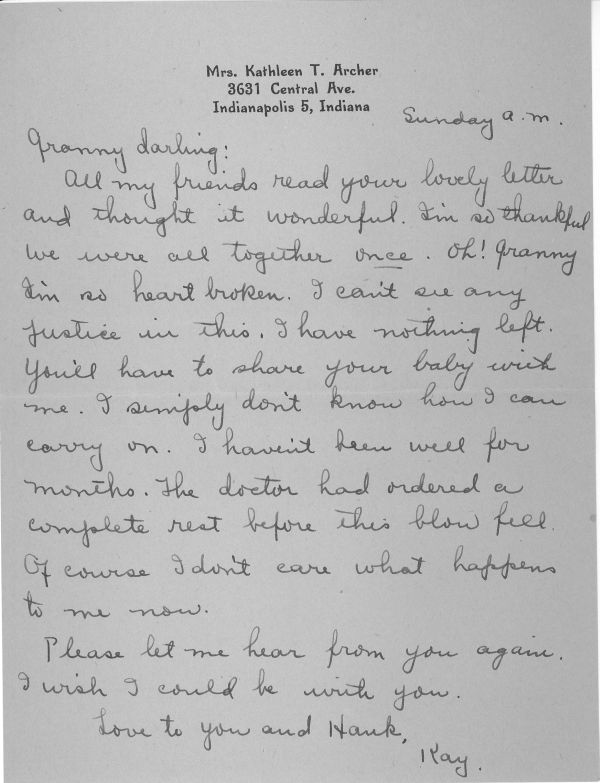 Mrs. Kathleen T. Archer
3631 Central Ave.
Indianapolis 5, Indiana
Sunday a.m.
Granny darling:
All my friends read your lovely letter
and thought it wonderful. I'm so thankful
we were all together once. Oh! Granny
I'm so heart broken. I can't see any
justice in this. I have nothing left.
You'll have to share your baby with
me. I simply don't know how I can
carry on. I haven't been well for
months. The doctor had ordered a
complete rest before this blow fell.
Of course I don't care what happens
to me now.
Please let me hear from you again.
I wish I could be with you.
Love to you and Hank,
Kay.